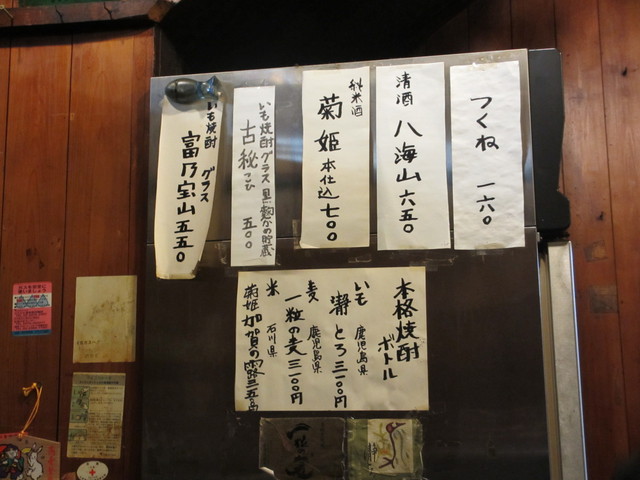 つくね 一六〇
清酒 八海山 六五〇
純米酒
菊姫 本仕込 七〇〇
いも焼酎 グラス 黒麹かめ貯蔵
古秘 こひ 五〇〇
いも焼酎 グラス
富乃宝山 五五〇
本格焼酎
ボトル
いも 鹿児島県
瀞とろ 三一〇〇円
麦 鹿児島県
一粒の麦 三一〇〇円
米 石川県
菊姫 加賀の露